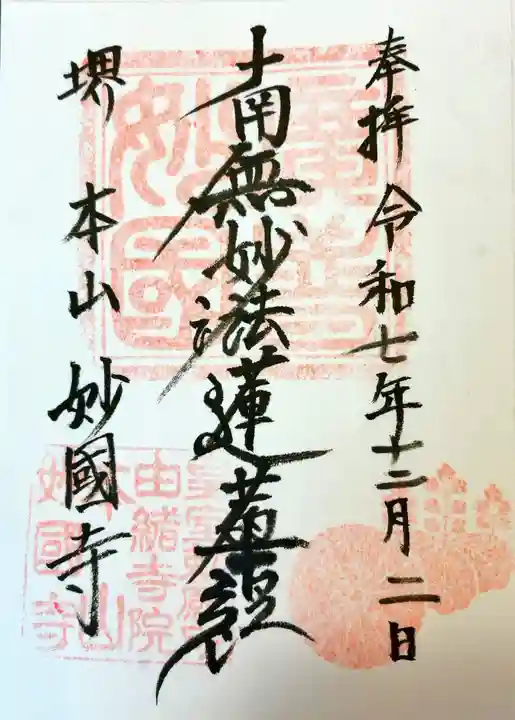 奉拝 令和七年十二月二日
南無妙法蓮華経
堺 本山 妙國寺
由緒寺院
本山
妙國寺